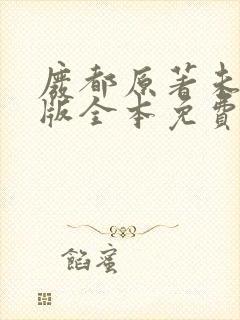 廢都原著未
版全本免費
餡蜜